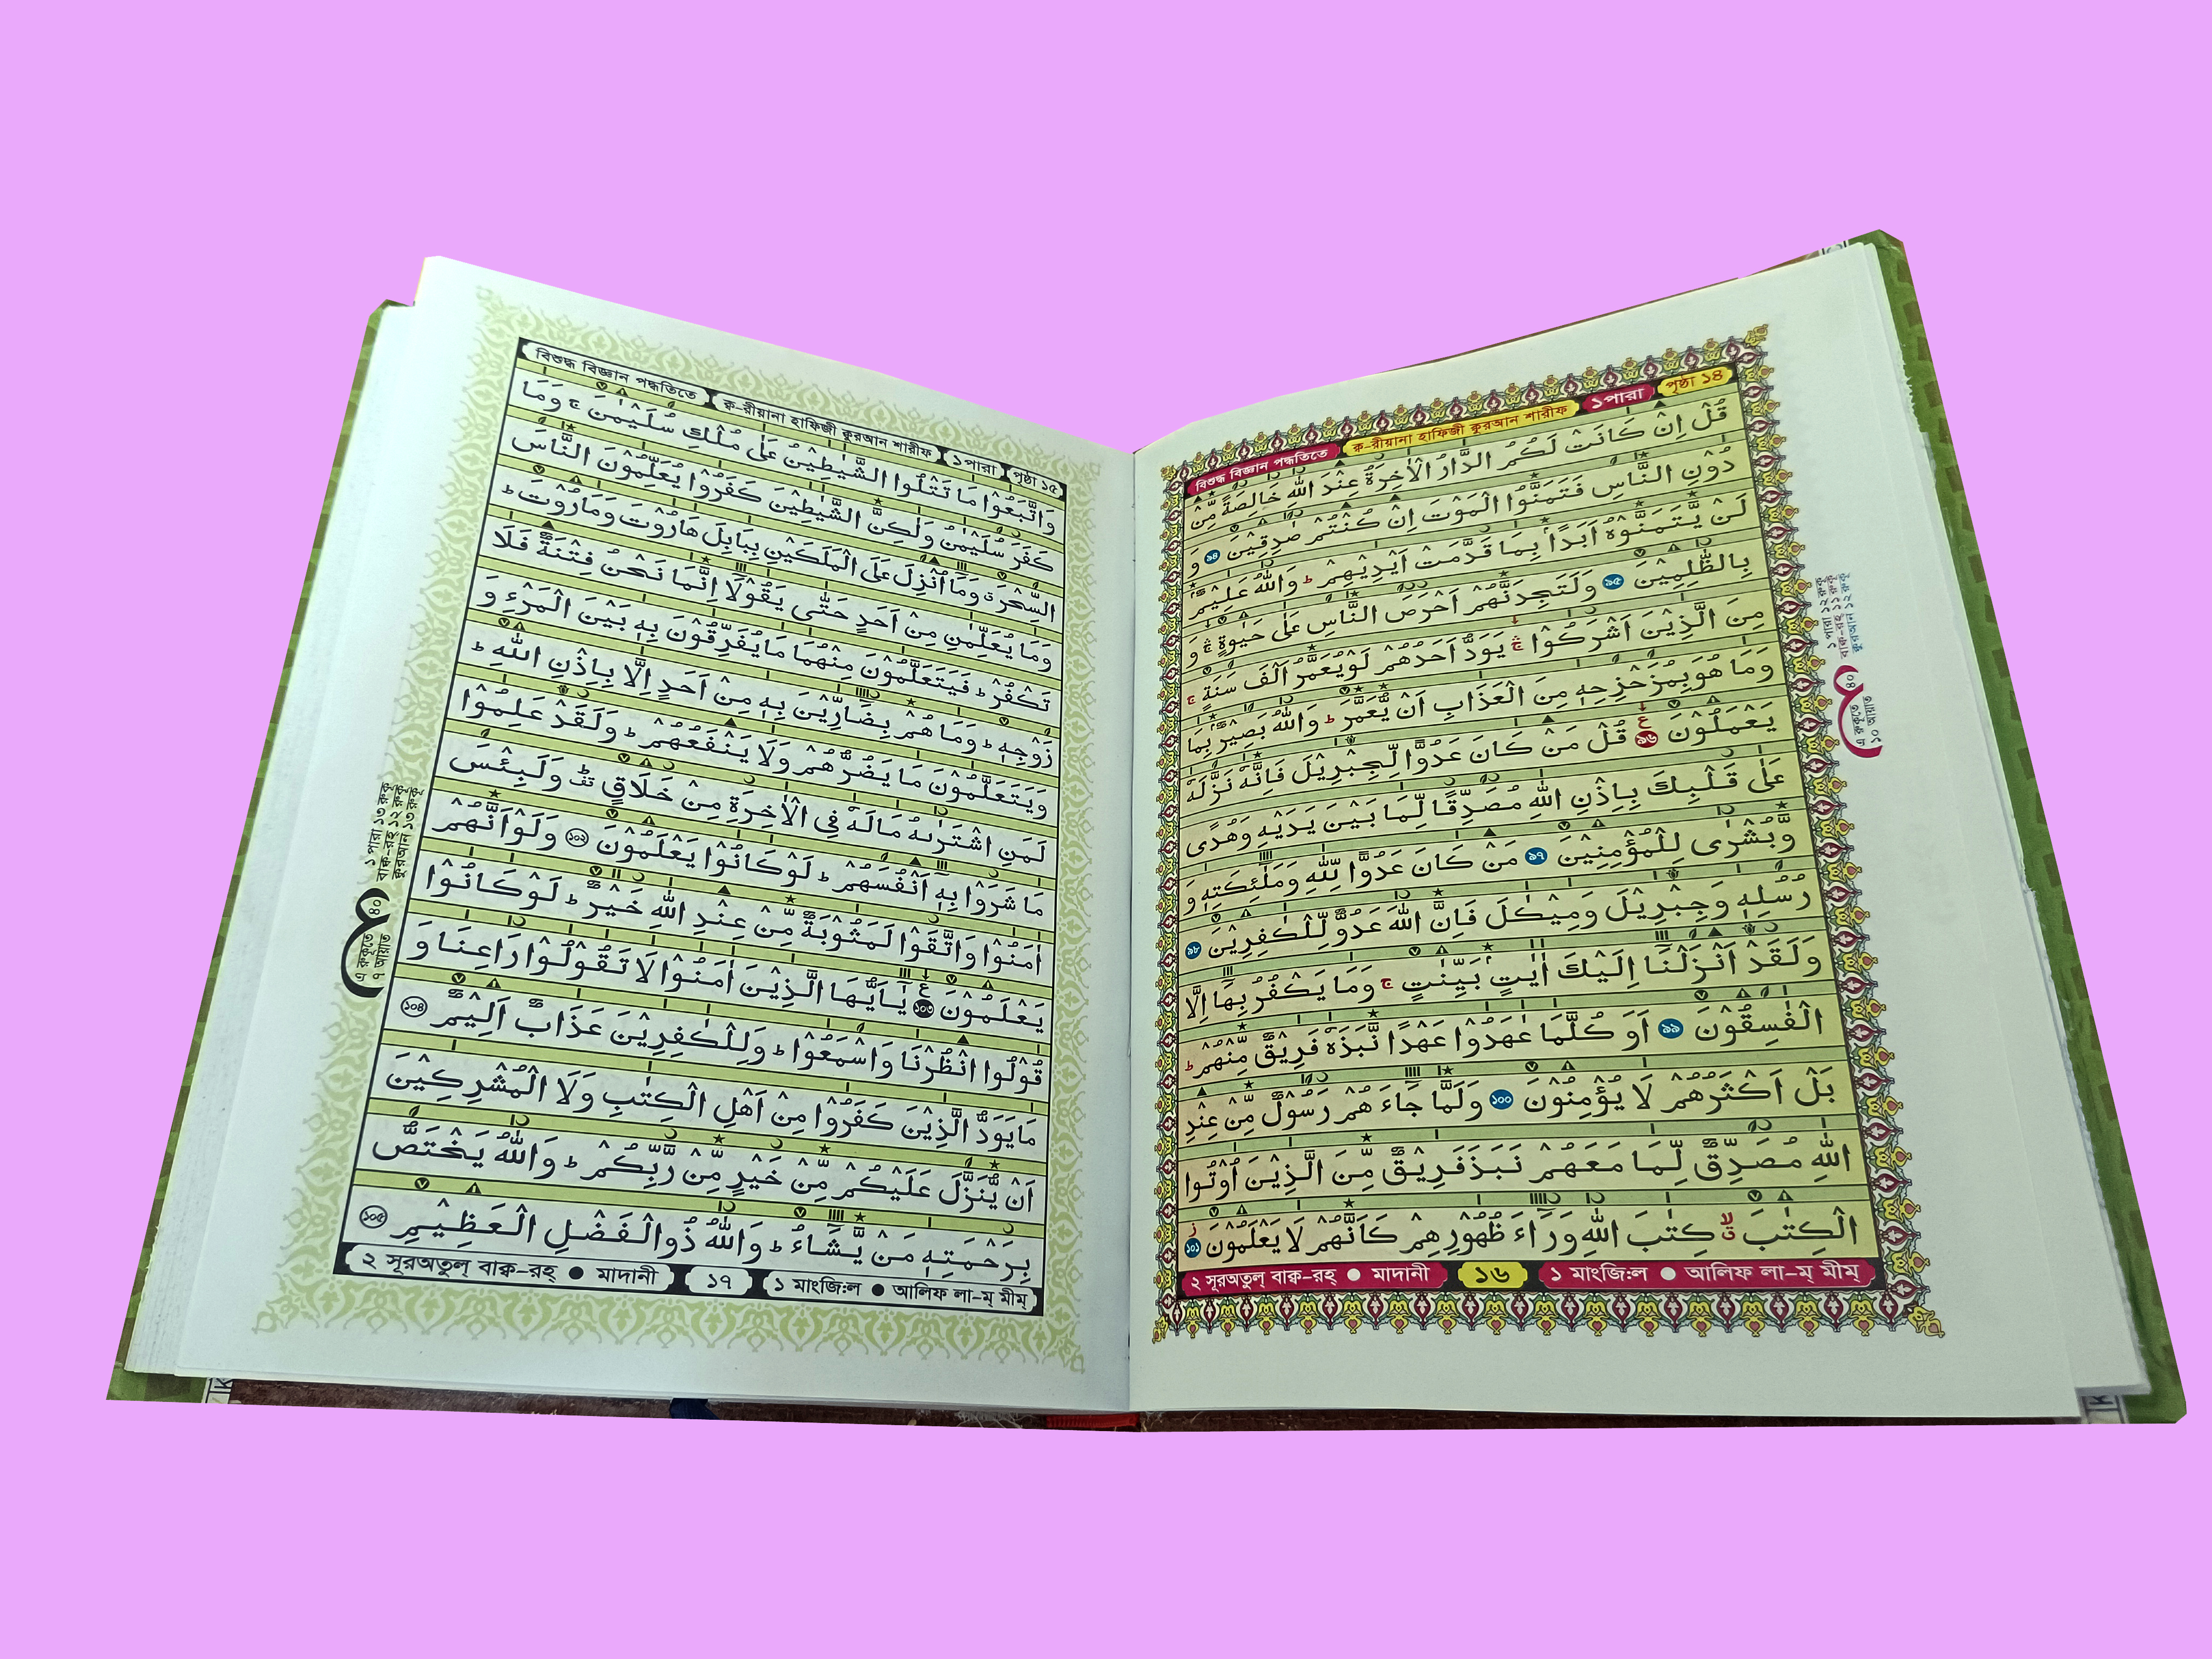 বিশুদ্ধ বিজ্ঞান পদ্ধতিতে ক্ব-রীয়ানা হাফিজী কুরআন শারীফ ১পারা পৃষ্ঠা ১৪
قُلْ اِنْ كَانَتْ لَكُمُ الدَّارُ الْاٰخِرَةُ عِنْدَ اللّٰهِ خَالِصَةً مِّنْ
دُوْنِ النَّاسِ فَتَمَنَّوُا الْمَوْتَ اِنْ كُنْتُمْ صٰدِقِيْنَ ৯৪ وَ
لَنْ يَّتَمَنَّوْهُ اَبَدًاۢ بِمَا قَدَّمَتْ اَيْدِيْهِمْ ؕ وَاللّٰهُ عَلِيْمٌۢ
بِالظّٰلِمِيْنَ ৯৫ وَلَتَجِدَنَّهُمْ اَحْرَصَ النَّاسِ عَلٰى حَيٰوةٍ ۛۚ وَ
مِنَ الَّذِيْنَ اَشْرَكُوْا ۛۚ يَوَدُّ اَحَدُهُمْ لَوْ يُعَمَّرُ اَلْفَ سَنَةٍ ۚ
وَمَا هُوَ بِمُزَحْزِحِهٖ مِنَ الْعَذَابِ اَنْ يُّعَمَّرَ ؕ وَاللّٰهُ بَصِيْرٌۢ بِمَا
يَعْمَلُوْنَ ৯৬ ع قُلْ مَنْ كَانَ عَدُوًّا لِّجِبْرِيْلَ فَاِنَّهٗ نَزَّلَهٗ
عَلٰى قَلْبِكَ بِاِذْنِ اللّٰهِ مُصَدِّقًا لِّمَا بَيْنَ يَدَيْهِ وَهُدًى
وَّبُشْرٰى لِلْمُؤْمِنِيْنَ ৯৭ مَنْ كَانَ عَدُوًّا لِّلّٰهِ وَمَلٰٓئِكَتِهٖ وَ
رُسُلِهٖ وَجِبْرِيْلَ وَمِيْكٰىلَ فَاِنَّ اللّٰهَ عَدُوٌّ لِّلْكٰفِرِيْنَ ৯৮
وَلَقَدْ اَنْزَلْنَاۤ اِلَيْكَ اٰيٰتٍۭ بَيِّنٰتٍ ۚ وَمَا يَكْفُرُ بِهَاۤ اِلَّا
الْفٰسِقُوْنَ ৯৯ اَوَ كُلَّمَا عٰهَدُوْا عَهْدًا نَّبَذَهٗ فَرِيْقٌ مِّنْهُمْ ؕ
بَلْ اَكْثَرُهُمْ لَا يُؤْمِنُوْنَ ১০০ وَلَمَّا جَآءَ هُمْ رَسُوْلٌ مِّنْ عِنْدِ
اللّٰهِ مُصَدِّقٌ لِّمَا مَعَهُمْ نَبَذَ فَرِيْقٌ مِّنَ الَّذِيْنَ اُوْتُوا
الْكِتٰبَ ۙ كِتٰبَ اللّٰهِ وَرَآءَ ظُهُوْرِهِمْ كَاَنَّهُمْ لَا يَعْلَمُوْنَ ১০১
২ সূরঅতুল্ বাক্ব-রহ্ ● মাদানী ১৬ ১ মাংজি:ল ● আলিফ লা-ম্ মীম্
১ পারা ১২ রুকু
বাক্ব-রহ্ ১১ রুকু
কুরআন ১২ রুকু
ع
৪০
এ রুকুতে
১০ আয়াত
বিশুদ্ধ বিজ্ঞান পদ্ধতিতে ক্ব-রীয়ানা হাফিজী কুরআন শারীফ ১পারা পৃষ্ঠা ১৫
وَاتَّبَعُوْا مَا تَتْلُوا الشَّيٰطِيْنُ عَلٰى مُلْكِ سُلَيْمٰنَ ۚ وَمَا
كَفَرَ سُلَيْمٰنُ وَلٰكِنَّ الشَّيٰطِيْنَ كَفَرُوْا يُعَلِّمُوْنَ النَّاسَ
السِّحْرَ ۗ وَمَاۤ اُنْزِلَ عَلَى الْمَلَكَيْنِ بِبَابِلَ هَارُوْتَ وَمَارُوْتَ ؕ
وَمَا يُعَلِّمٰنِ مِنْ اَحَدٍ حَتّٰى يَقُوْلَاۤ اِنَّمَا نَحْنُ فِتْنَةٌ فَلَا
تَكْفُرْ ؕ فَيَتَعَلَّمُوْنَ مِنْهُمَا مَا يُفَرِّقُوْنَ بِهٖ بَيْنَ الْمَرْءِ وَ
زَوْجِهٖ ؕ وَمَا هُمْ بِضَآرِّيْنَ بِهٖ مِنْ اَحَدٍ اِلَّا بِاِذْنِ اللّٰهِ ؕ
وَيَتَعَلَّمُوْنَ مَا يَضُرُّهُمْ وَلَا يَنْفَعُهُمْ ؕ وَلَقَدْ عَلِمُوْا
لَمَنِ اشْتَرٰىهُ مَا لَهٗ فِى الْاٰخِرَةِ مِنْ خَلَاقٍ ؕ وَلَبِئْسَ
مَا شَرَوْا بِهٖۤ اَنْفُسَهُمْ ؕ لَوْ كَانُوْا يَعْلَمُوْنَ ১০২ وَلَوْ اَنَّهُمْ
اٰمَنُوْا وَاتَّقَوْا لَمَثُوْبَةٌ مِّنْ عِنْدِ اللّٰهِ خَيْرٌ ؕ لَوْ كَانُوْا
يَعْلَمُوْنَ ১০৩ ع يٰۤاَيُّهَا الَّذِيْنَ اٰمَنُوْا لَا تَقُوْلُوْا رَاعِنَا وَ
قُوْلُوا انْظُرْنَا وَاسْمَعُوْا ؕ وَلِلْكٰفِرِيْنَ عَذَابٌ اَلِيْمٌ ১০৪
مَا يَوَدُّ الَّذِيْنَ كَفَرُوْا مِنْ اَهْلِ الْكِتٰبِ وَلَا الْمُشْرِكِيْنَ
اَنْ يُّنَزَّلَ عَلَيْكُمْ مِّنْ خَيْرٍ مِّنْ رَّبِّكُمْ ؕ وَاللّٰهُ يَخْتَصُّ
بِرَحْمَتِهٖ مَنْ يَّشَآءُ ؕ وَاللّٰهُ ذُوالْفَضْلِ الْعَظِيْمِ ১০৫
২ সূরঅতুল্ বাক্ব-রহ্ ● মাদানী ১৭ ১ মাংজি:ল ● আলিফ লা-ম্ মীম্
১ পারা ১৩ রুকু
বাক্ব-রহ্ ১২ রুকু
কুরআন ১৩ রুকু
ع
৪০
এ রুকুতে
৭ আয়াত